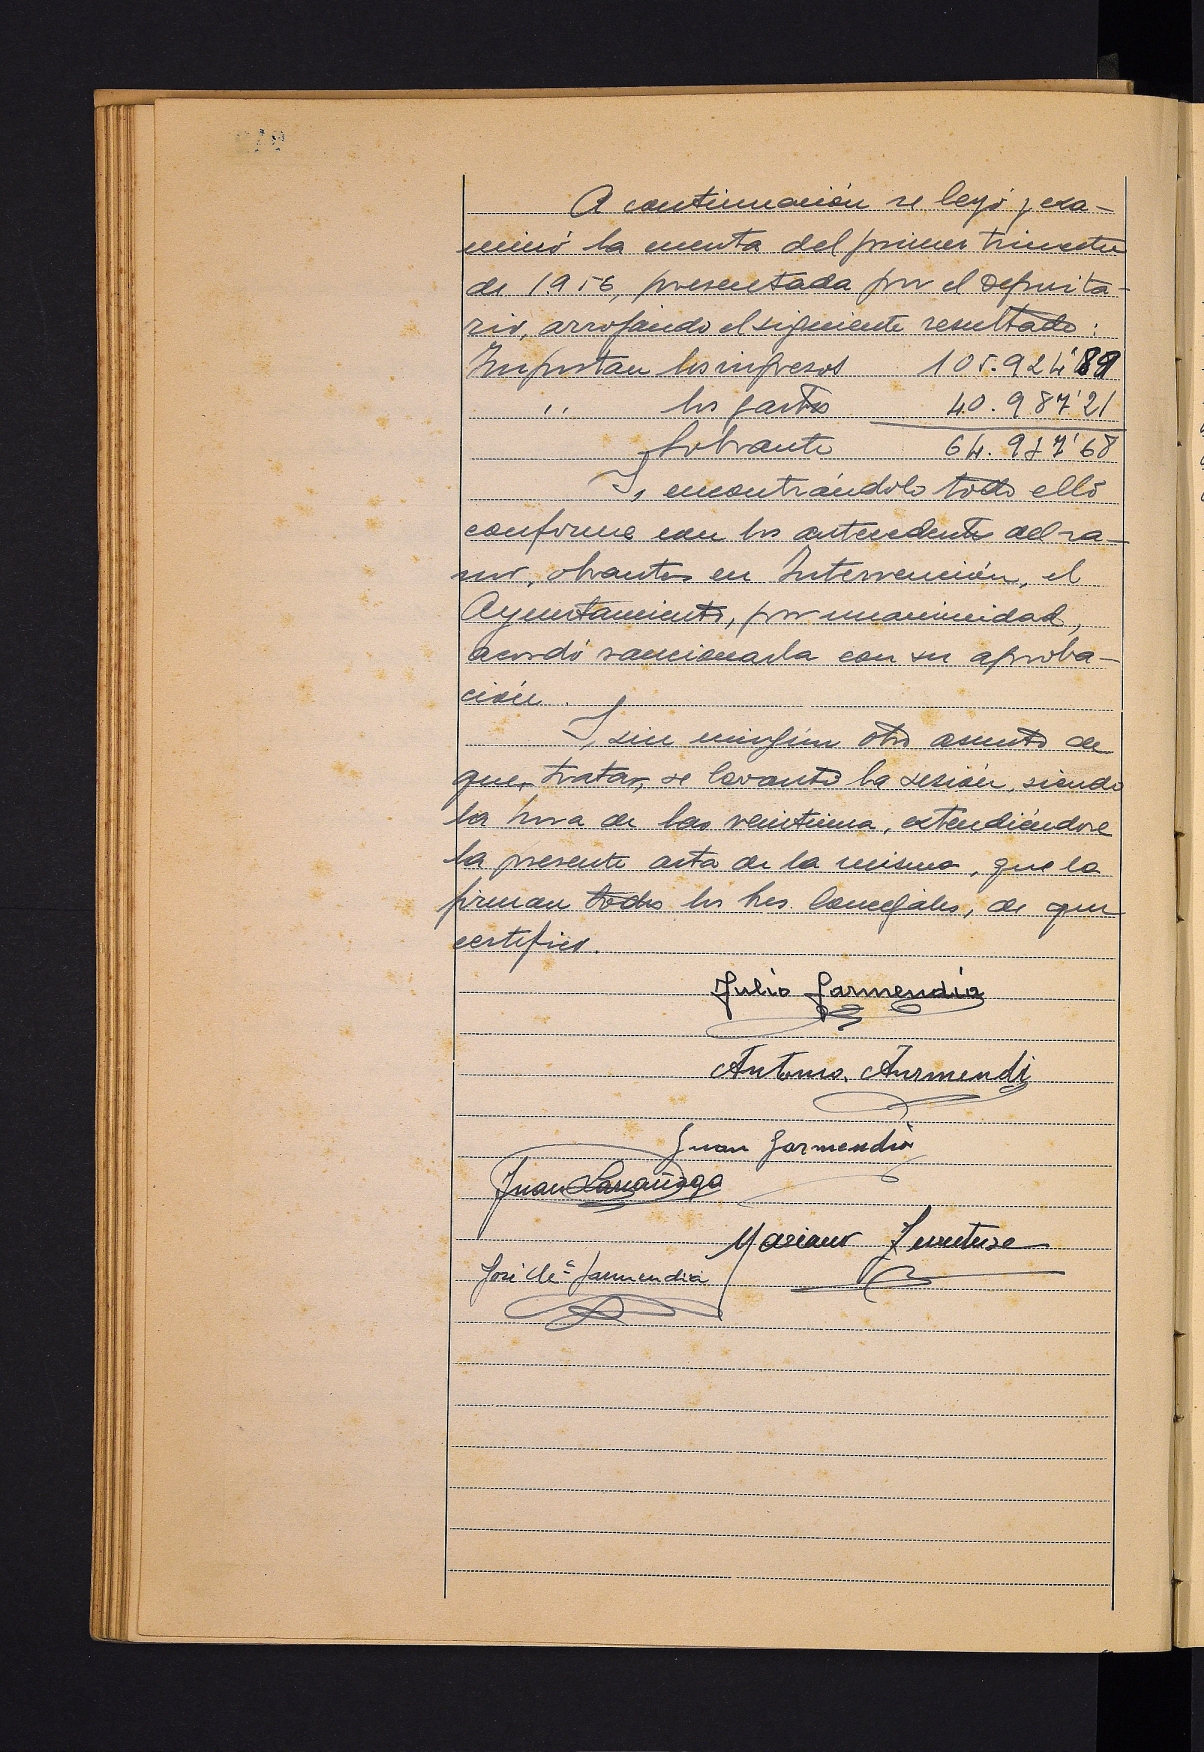 A continuación se leyó y exa-
minó la cuenta del primer trimestre
de 1956, presentada por el Deposita-
rio, arrojando el siguiente resultado:
Importan los ingresos 105.924'89
" los gastos 40.987'21
Sobrante 64.937'68
Y, encontrándolo todo ello
conforme con los antecedentes del ra-
mo, obrantes en Intervención, el
Ayuntamiento, por unanimidad,
acordó sancionarla con su aproba-
ción.
Y, sin ningún otro asunto de
que tratar, se levantó la sesión, siendo
la hora de las veintiuna, extendiéndose
la presente acta de la misma, que la
firman todos los Sres. Concejales, de que
certifico.
Julio Garmendia
Antonio Aurmendi
Juan Garmendia
Juan Larrañaga
Mariano
José Mª Garmendia